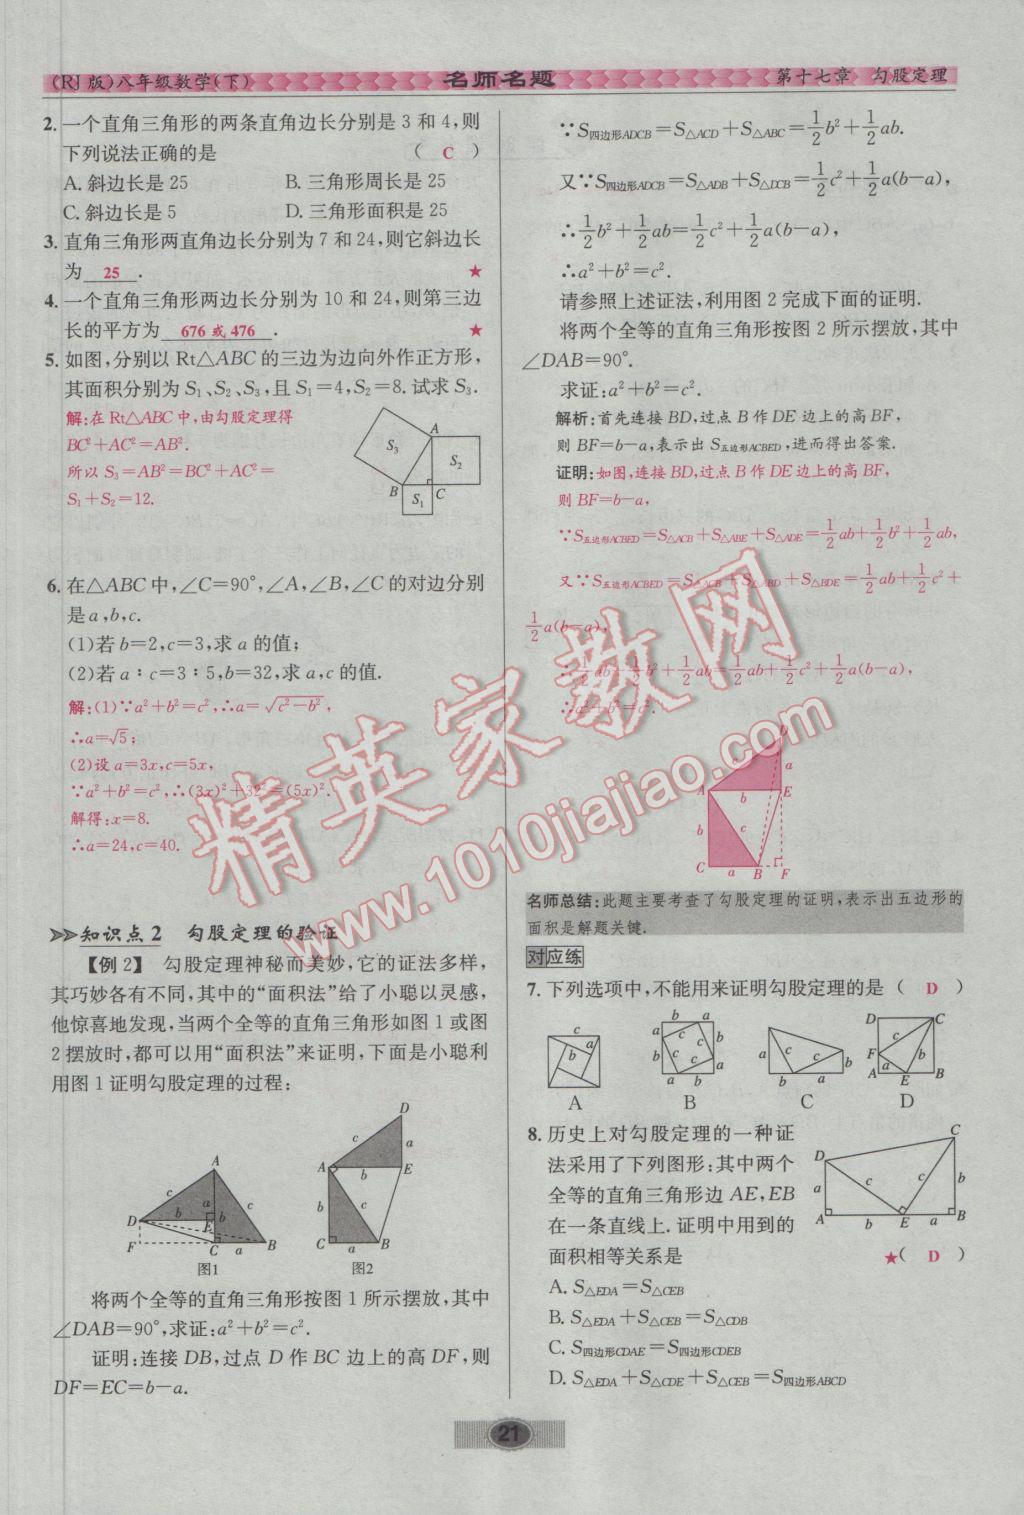 (RJ版)八年级数学(下)
名师名题
第十七章 勾股定理
2. 一个直角三角形的两条直角边长分别是 3 和 4,则
下列说法正确的是 ( C )
A. 斜边长是 25 B. 三角形周长是 25
C. 斜边长是 5 D. 三角形面积是 25
3. 直角三角形两直角边长分别为 7 和 24,则它斜边长
为 25 . ★
4. 一个直角三角形两边长分别为 10 和 24,则第三边
长的平方为 676 或 476 . ★
5. 如图,分别以 Rt△ABC 的三边为边向外作正方形,
其面积分别为 S₁、S₂、S₃,且 S₁=4,S₂=8. 试求 S₃.
解:在 Rt△ABC 中,由勾股定理得
BC²+AC²=AB².
所以 S₃=AB²=BC²+AC²=
S₁+S₂=12.
S₃ A S₂ B S₁ C
6. 在△ABC 中,∠C=90°,∠A,∠B,∠C 的对边分别
是 a,b,c.
(1)若 b=2,c=3,求 a 的值;
(2)若 a∶c=3∶5,b=32,求 a,c 的值.
解:(1)∵a²+b²=c²,∴a=√(c²-b²),
∴a=√5;
(2)设 a=3x,c=5x,
∵a²+b²=c²,∴(3x)²+32²=(5x)².
解得:x=8.
∴a=24,c=40.
知识点 2 勾股定理的验证
【例 2】 勾股定理神秘而美妙,它的证法多样,
其巧妙各有不同,其中的“面积法”给了小聪以灵感,
他惊喜地发现,当两个全等的直角三角形如图 1 或图
2 摆放时,都可以用“面积法”来证明,下面是小聪利
用图 1 证明勾股定理的过程:
A c a c D b E b F C a B
图1
D c a A b E b c C a B
图2
将两个全等的直角三角形按图 1 所示摆放,其中
∠DAB=90°,求证:a²+b²=c².
证明:连接 DB,过点 D 作 BC 边上的高 DF,则
DF=EC=b-a.
∵S四边形ADCB=S△ACD+S△ABC=1/2b²+1/2ab.
又∵S四边形ADCB=S△ADB+S△DCB=1/2c²+1/2a(b-a),
∴1/2b²+1/2ab=1/2c²+1/2a(b-a),
∴a²+b²=c².
请参照上述证法,利用图 2 完成下面的证明.
将两个全等的直角三角形按图 2 所示摆放,其中
∠DAB=90°.
求证:a²+b²=c².
解析:首先连接 BD,过点 B 作 DE 边上的高 BF,
则 BF=b-a,表示出 S五边形ACBED,进而得出答案.
证明:如图,连接 BD,过点 B 作 DE 边上的高 BF,
则 BF=b-a,
∵S五边形ACBED=S△ACB+S△ABE+S△ADE=1/2ab+1/2b²+1/2ab,
又∵S五边形ACBED=S△ACB+S△ABD+S△BDE=1/2ab+1/2c²+
1/2a(b-a),
∴1/2ab+1/2b²+1/2ab=1/2ab+1/2c²+1/2a(b-a),
∴a²+b²=c².
D a A b E b c C a B F
名师总结:此题主要考查了勾股定理的证明,表示出五边形的
面积是解题关键.
对应练
7. 下列选项中,不能用来证明勾股定理的是 ( D )
A B C D
8. 历史上对勾股定理的一种证
法采用了下列图形:其中两个
全等的直角三角形边 AE,EB
在一条直线上. 证明中用到的
面积相等关系是 ★( D )
C D c c b a A b E a B
A. S△EDA=S△CEB
B. S△EDA+S△CEB=S△CDB
C. S四边形CDAE=S四边形CDEB
D. S△EDA+S△CDE+S△CEB=S四边形ABCD
21
精英家教网
www.1010jiajiao.com